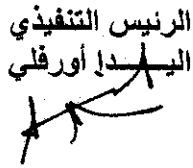 الرئيس التنفيذي
اليـــدا أورفلي